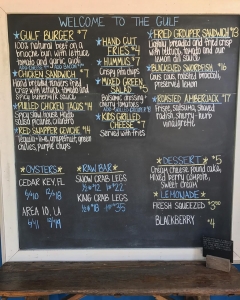 WELCOME TO THE GULF
*GULF BURGER *7
100% natural beef on a
bun with lettuce
tomato and garlic aioli
*CHICKEN SANDWICH *7
Hand breaded tenders fried
crisp with lettuce, tomato and
spicy buttermilk sauce
*PULLED CHICKEN TACOS
Spicy slaw, house made
pickled onions, cilantro
*RED SNAPPER CEVICHE *14
green
chiles, purple chips
*HAND CUT
FRIES *4
*HUMMUS *7
Crispy pita chips
*MIXED GREEN
SALAD *5
Balsamic dressing
cherry tomatoes
*KIDS GRILLED
CHEESE *7
Served with fries
*FRIED GROUPER SANDWICH *13
Lightly breaded and fried crisp
with lettuce, tomato and our
lemon dill sauce
*BLACKENED SWORDFISH *16
preserved lemon
*ROASTED AMBERJACK *17
radish, sherry
vinaigrette
*OYSTERS*
CEDAR KEY, FL
AREA 10, LA
*RAW BAR*
SNOW CRAB LEGS
½ *12 *22
KING CRAB LEGS
½ *18 *35
*DESSERT* *5
Creamy cheese pound cake,
mixed berry compote,
sweet cream
*LEMONADE*
FRESH SQUEEZED
BLACKBERRY *4